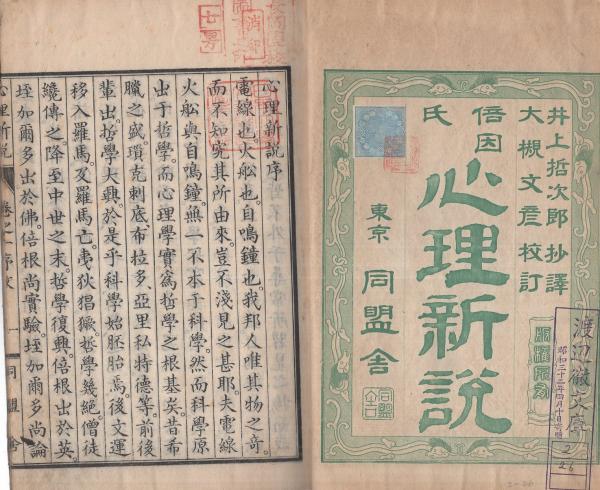 井上哲次郎 抄譯
大槻文彦 校訂
倍因氏
心理新説
東京 同盟舎
渡辺徹文庫
昭和三十三年四月十日寄贈
2
26
心理新説序
電線也。火船也。自鳴鐘也。我邦人唯其物之奇。
而不知究其所由來。豈不淺見之甚耶。夫電線
火船與自鳴鐘。無一不本于科學。然而科學原
出于哲學。而心理學實爲哲學之根基矣。昔希
臘之盛。瑣克刺底、布拉多、亞里私特德等。前後
輩出。哲學大興。於是乎科學始胚胎焉。後文運
移入羅馬。及羅馬亡。夷狄猖獗。哲學幾絕。僧徒
纔傳之。降至中世之末。哲學復興。倍根出於英。
垤加爾多出於佛。倍根尚實驗。垤加爾多尚論
心理新説 卷之一 序文 一 同盟舎